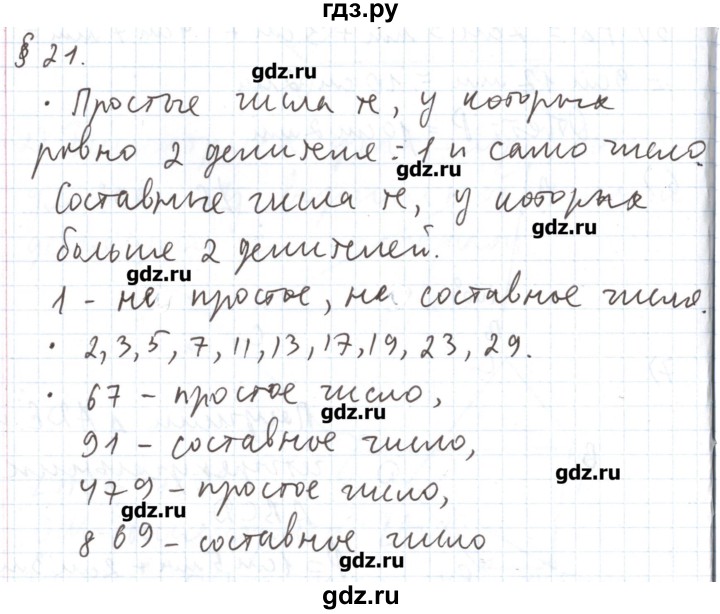 гдз.ру
§ 21.
gdz.ru
· Простые числа те, у которых
ровно 2 делителя: 1 и само число.
gdz.ru
Составные числа те, у которых
gdz.ru
больше 2 делителей.
gdz.ru
1 - не простое, не составное число.
· 2, 3, 5, 7, 11, 13, 17, 19, 23, 29.
gdz.ru
· 67 - простое число,
gdz.ru
91 - составное число,
gdz.ru
479 - простое число,
gdz.ru
869 - составное число
gdz.ru
gdz.ru